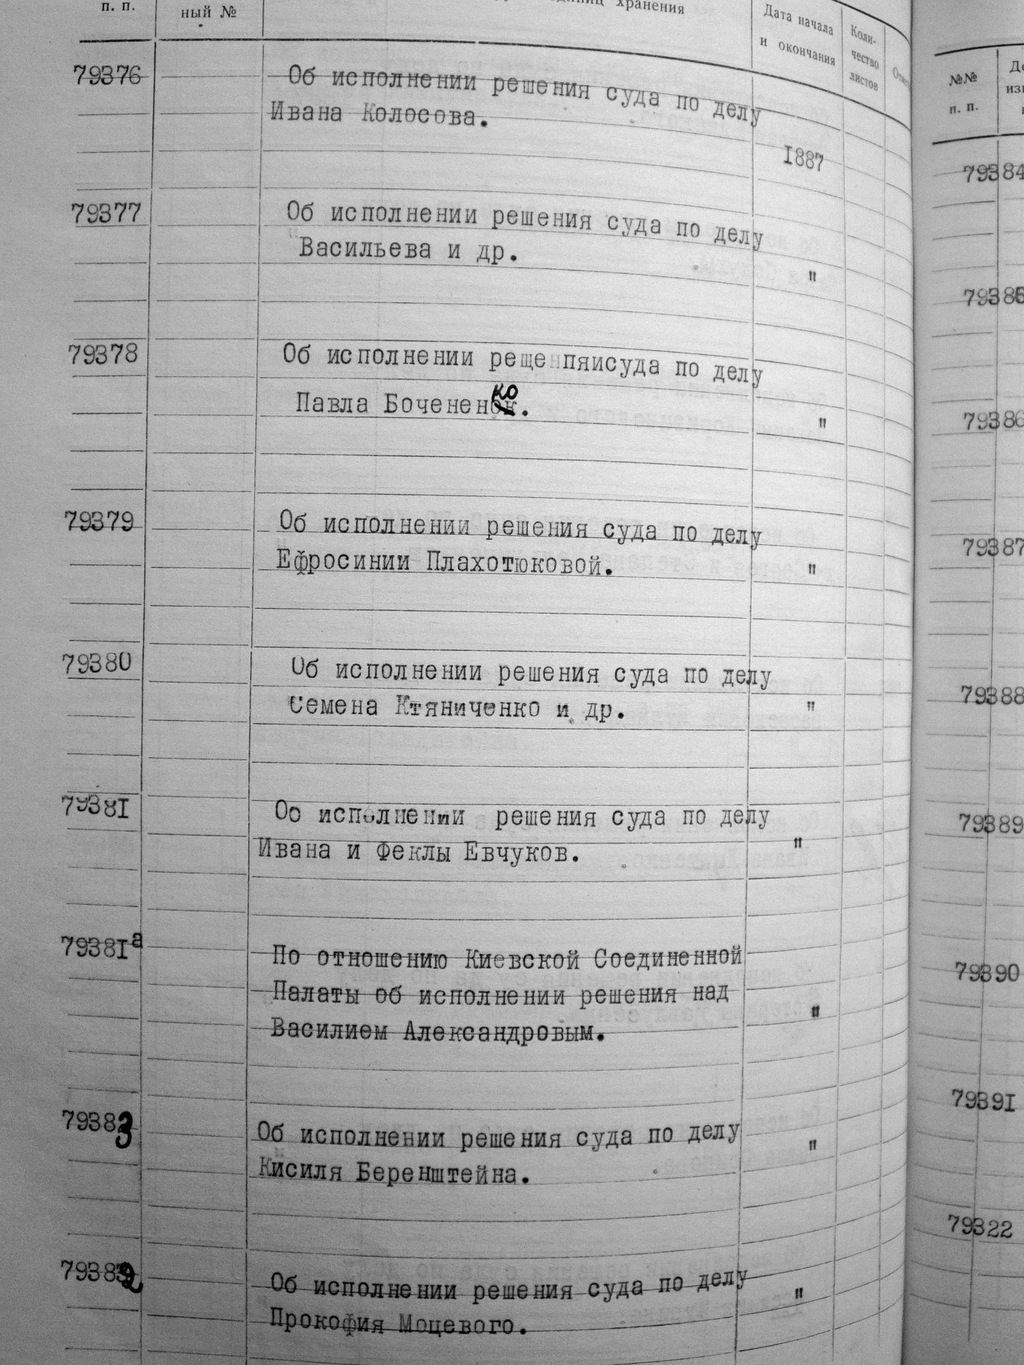 п. п.
ный №
единиц хранения
Дата начала
и окончания
Коли-
чество
листов
79376
Об исполнении решения суда по делу
Ивана Колосова.
1887
79377
Об исполнении решения суда по делу
Васильева и др.
"
79378
Об исполнении реще пяисуда по делу
Павла Боченен ко.
"
79379
Об исполнении решения суда по делу
Ефросинии Плахотюковой.
"
79380
Об исполнении решения суда по делу
Семена Ктяниченко и др.
"
79381
Об исполнении решения суда по делу
Ивана и Феклы Евчуков.
"
79381а
По отношению Киевской Соединенной
Палаты об исполнении решения над
Василием Александровым.
"
79383
Об исполнении решения суда по делу
Кисиля Беренштейна.
"
79382
Об исполнении решения суда по делу
Прокофия Моцевого.
"
№№
п. п.
79384
79385
79386
79387
79388
79389
79390
79391
79322